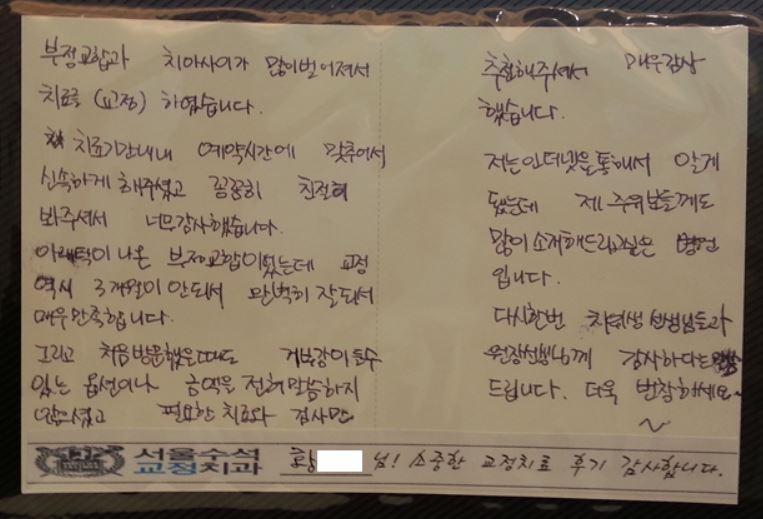 부정교합과 치아사이가 많이벌어져서
치료를 (교정) 하였습니다.
치료기간내내 예약시간에 맞추어서
신속하게 해주셨고 꼼꼼히 친절히
봐주셔서 너무감사했습니다.
아래턱이 나온 부정교합이었는데 교정
역시 3개월이 안되서 완벽히 잘되서
매우만족합니다.
그리고 처음방문했을때도 거부감이 들수
있는 옵션이나 금액을 전혀말씀하지
않으셨고 필요한 치료와 검사만
추천해주셔서 매우감사
했습니다.
저는인터넷을통해서 알게
됐는데 제 주위분들께도
많이 소개해드리고싶은 병원
입니다.
다시한번 치위생선생님들과
원장선생님께 감사하다는
드립니다. 더욱 번창하세요~
서울수석
교정치과
황 님! 소중한 교정치료 후기 감사합니다.